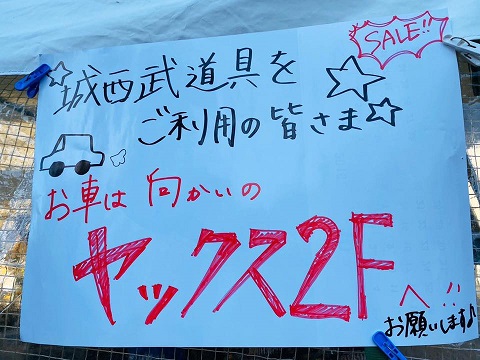 SALE!!
☆城西武道具を☆
ご利用の皆さま☆
お車は向かいの
ヤックス2Fへ!!
お願いします♪